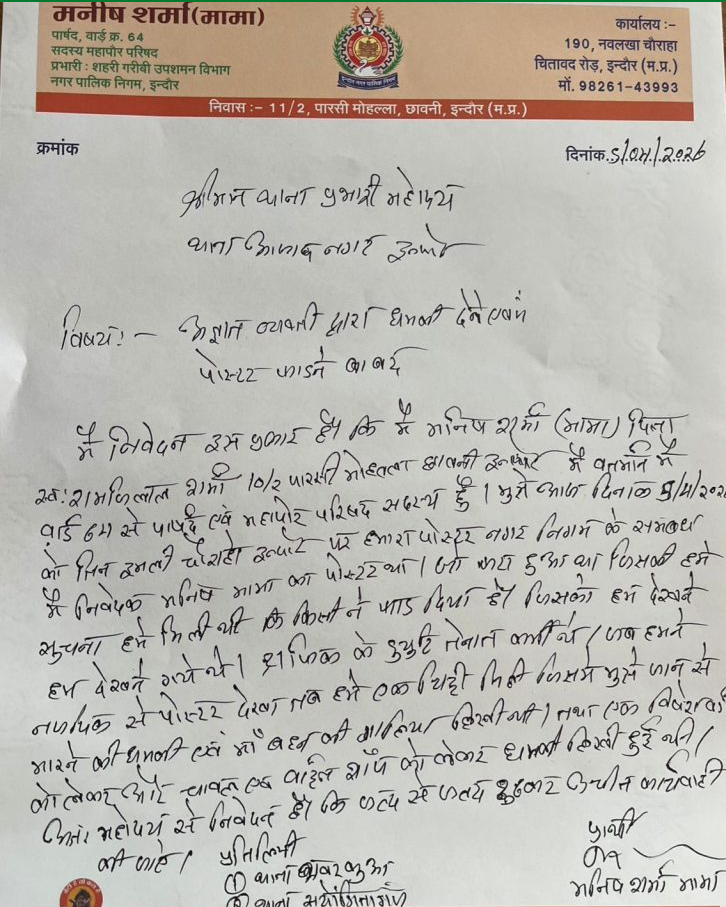 मनीष शर्मा(मामा)
पार्षद, वार्ड क्र. 64
सदस्य महापोर परिषद
प्रभारी : शहरी गरीबी उपशमन विभाग
नगर पालिक निगम, इन्दौर
कार्यालय :-
190, नवलखा चौराहा
चितावद रोड़, इन्दौर (म.प्र.)
मों. 98261-43993
निवास :- 11/2, पारसी मोहल्ला, छावनी, इन्दौर (म.प्र.)
क्रमांक
दिनांक 5/04/2026
श्रीमान थाना प्रभारी महोदय
थाना आजाद नगर इन्दौर
विषय:- अज्ञात व्यक्ती द्वारा धमकी देने एवम
पोस्टर फाडने बाबद
मै निवेदन इस प्रकार है। कि मै मनिष शर्मा (मामा) पिता
स्व: रामजिलाल शर्मा 10/2 पारसी मोहल्ला छावनी इन्दौर मै वर्तमान मै
वार्ड 64 से पार्षद एवं महापोर परिषद सदस्य हूँ। मुझे आज दिनांक 5/4/202
को तिन इमली चौराहा इन्दौर पर हमारा पोस्टर नगर निगम के सम्बन्ध
मै निवेदक मनिष मामा का पोस्टर था। जो फटा हुआ था जिसकी हमे
सुचना हमे मिली थी कि किसी ने फाड दिया है। जिसको हम देखने
हम देखने गये थे। ट्राफिक के ड्युटि तेनात कर्मी थे। जब हमने
नजदिक से पोस्टर देखा तब हमे एक चिट्ठी मिली जिसमे मुझे जान से
मारने की धमकी एवं माँ बहन की गालिया लिखी थी। तथा एक विशेष
को लेकर और चावल एवं को लेकर धमकी लिखी हुई थी।
अतः महोदय से निवेदन है। कि जल्द से जल्द उचीत कार्यवाही
की जाहे।
प्रतिलिपी
① थाना भवरकुआ
② थाना संयोगितागंज
प्रार्थी
मनिष शर्मा मामा